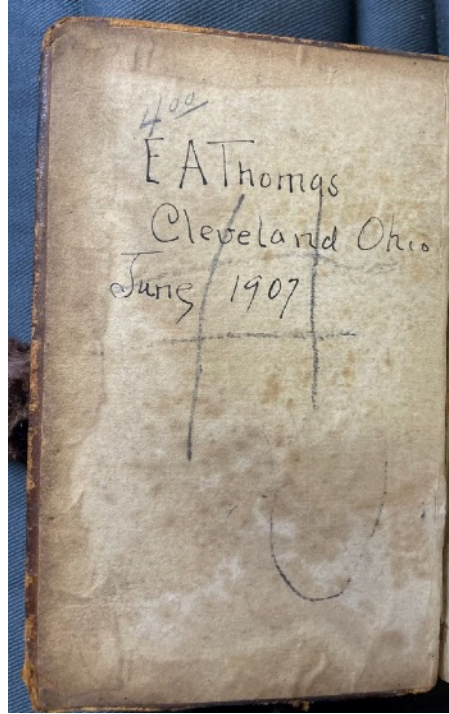 4.00
E A Thomas
Cleveland Ohio
June 1907